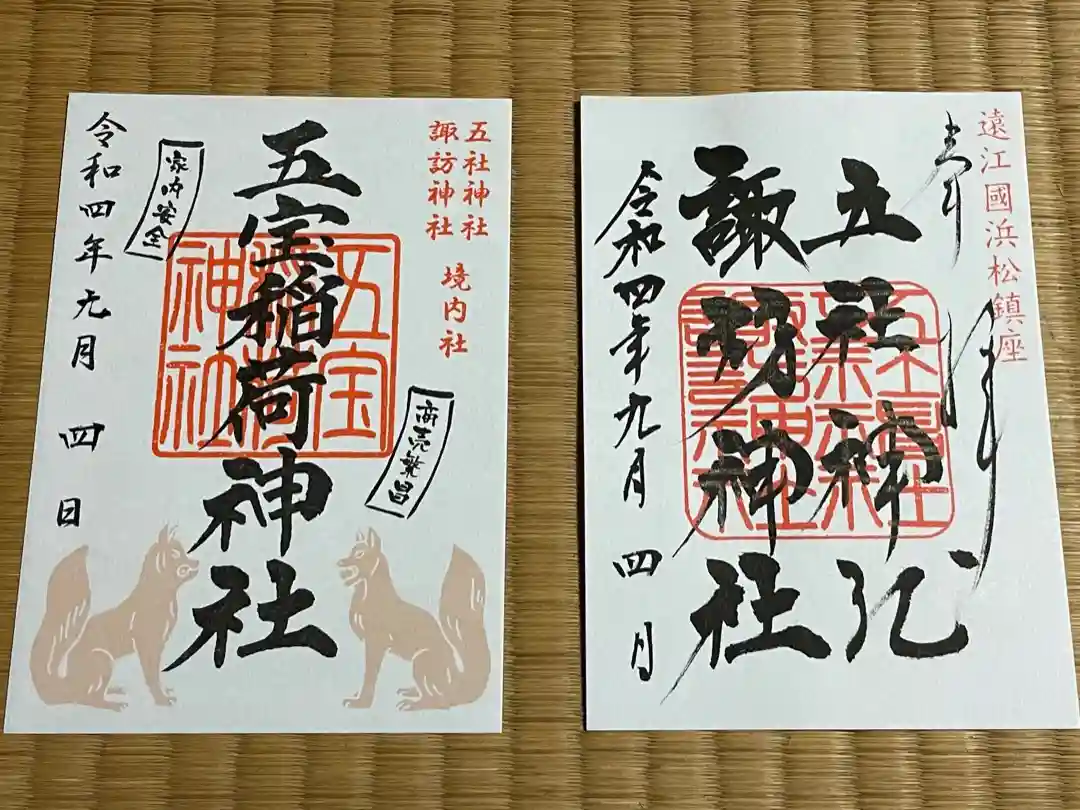 五社神社
諏訪神社
境内社
商売繁昌
五宝稲荷神社
五宝
稲荷
神社
家内安全
令和四年九月四日
遠江國浜松鎮座
奉拝
五社神社
諏訪神社
令和四年九月四日